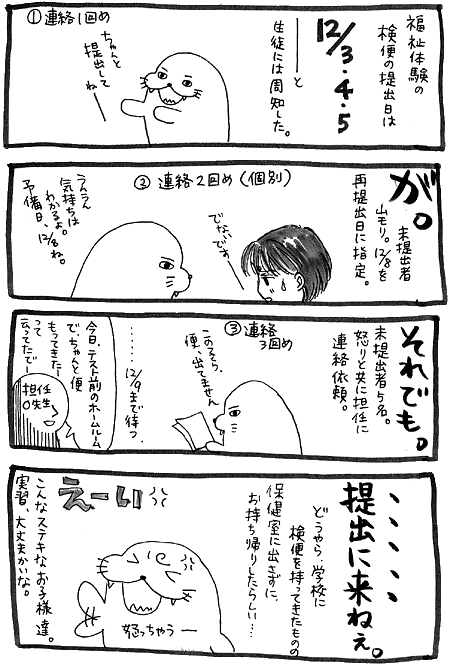 福祉体験の
検便の提出日は
12/3・4・5
――と
生徒には周知した。
①連絡1回め
ちゃんと
提出して
ねー
が。
未提出者
山モリ。12/8を
再提出日に指定。
②連絡2回め(個別)
でないです
うんうん
気持ちは
わかるよ。
予備日、12/8ね。
それでも。
未提出者5名。
怒りと共に担任に
連絡依頼。
③連絡
3回め
このみっら、
便、出てません
……12/9まで待つ。
今日、テスト前のホームルーム
で、ちゃんと便
もってきたー
って
云ってたでー
担任
○先生
、、、、、
提出に来ねぇ。
どうやら、学校に
検便を持ってきたものの
保健室に出さずに、
お持ち帰りしたらしい…
えーい
怒っちゃうー
こんなステキなお子様達。
実習、大丈夫かいな。